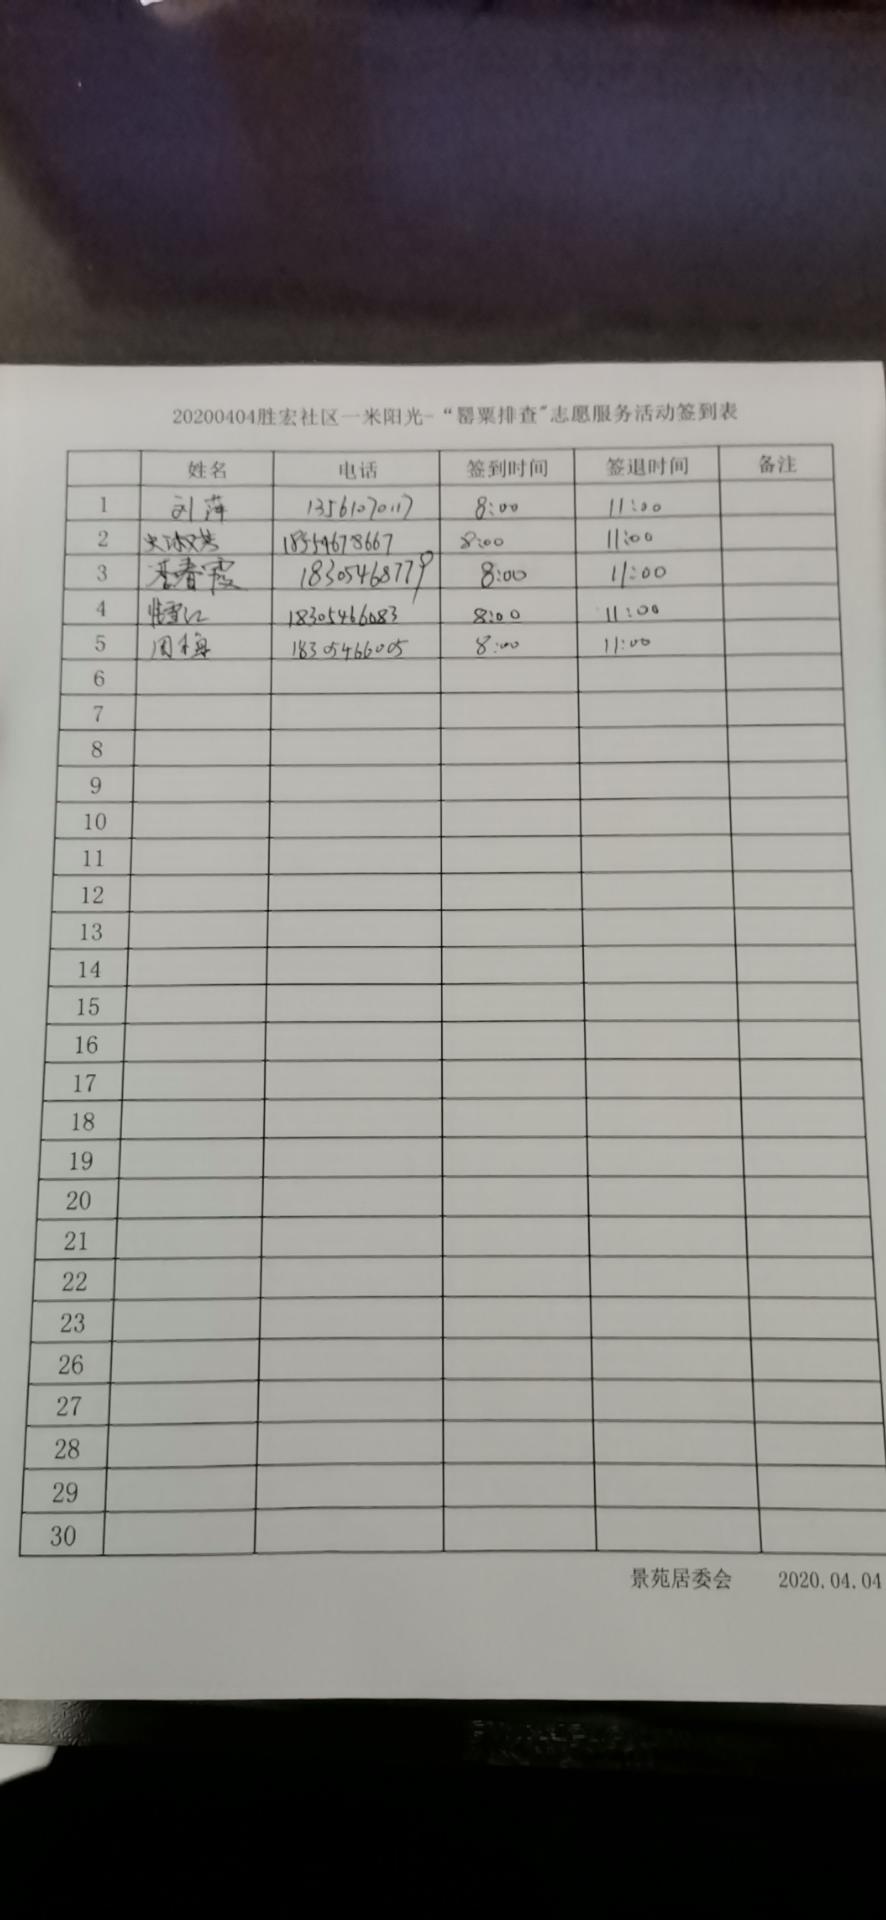 20200404胜宏社区一米阳光-“罂粟排查"志愿服务活动签到表
姓名 电话 签到时间 签退时间 备注
1 刘萍 13561070117 8:00 11:00
2 18554678667 8:00 11:00
3 春霞 18305468779 8:00 11:00
4 18305466083 8:00 11:00
5 周梅 18305466005 8:00 11:00
6
7
8
9
10
11
12
13
14
15
16
17
18
19
20
21
22
23
26
27
28
29
30
景苑居委会 2020.04.04